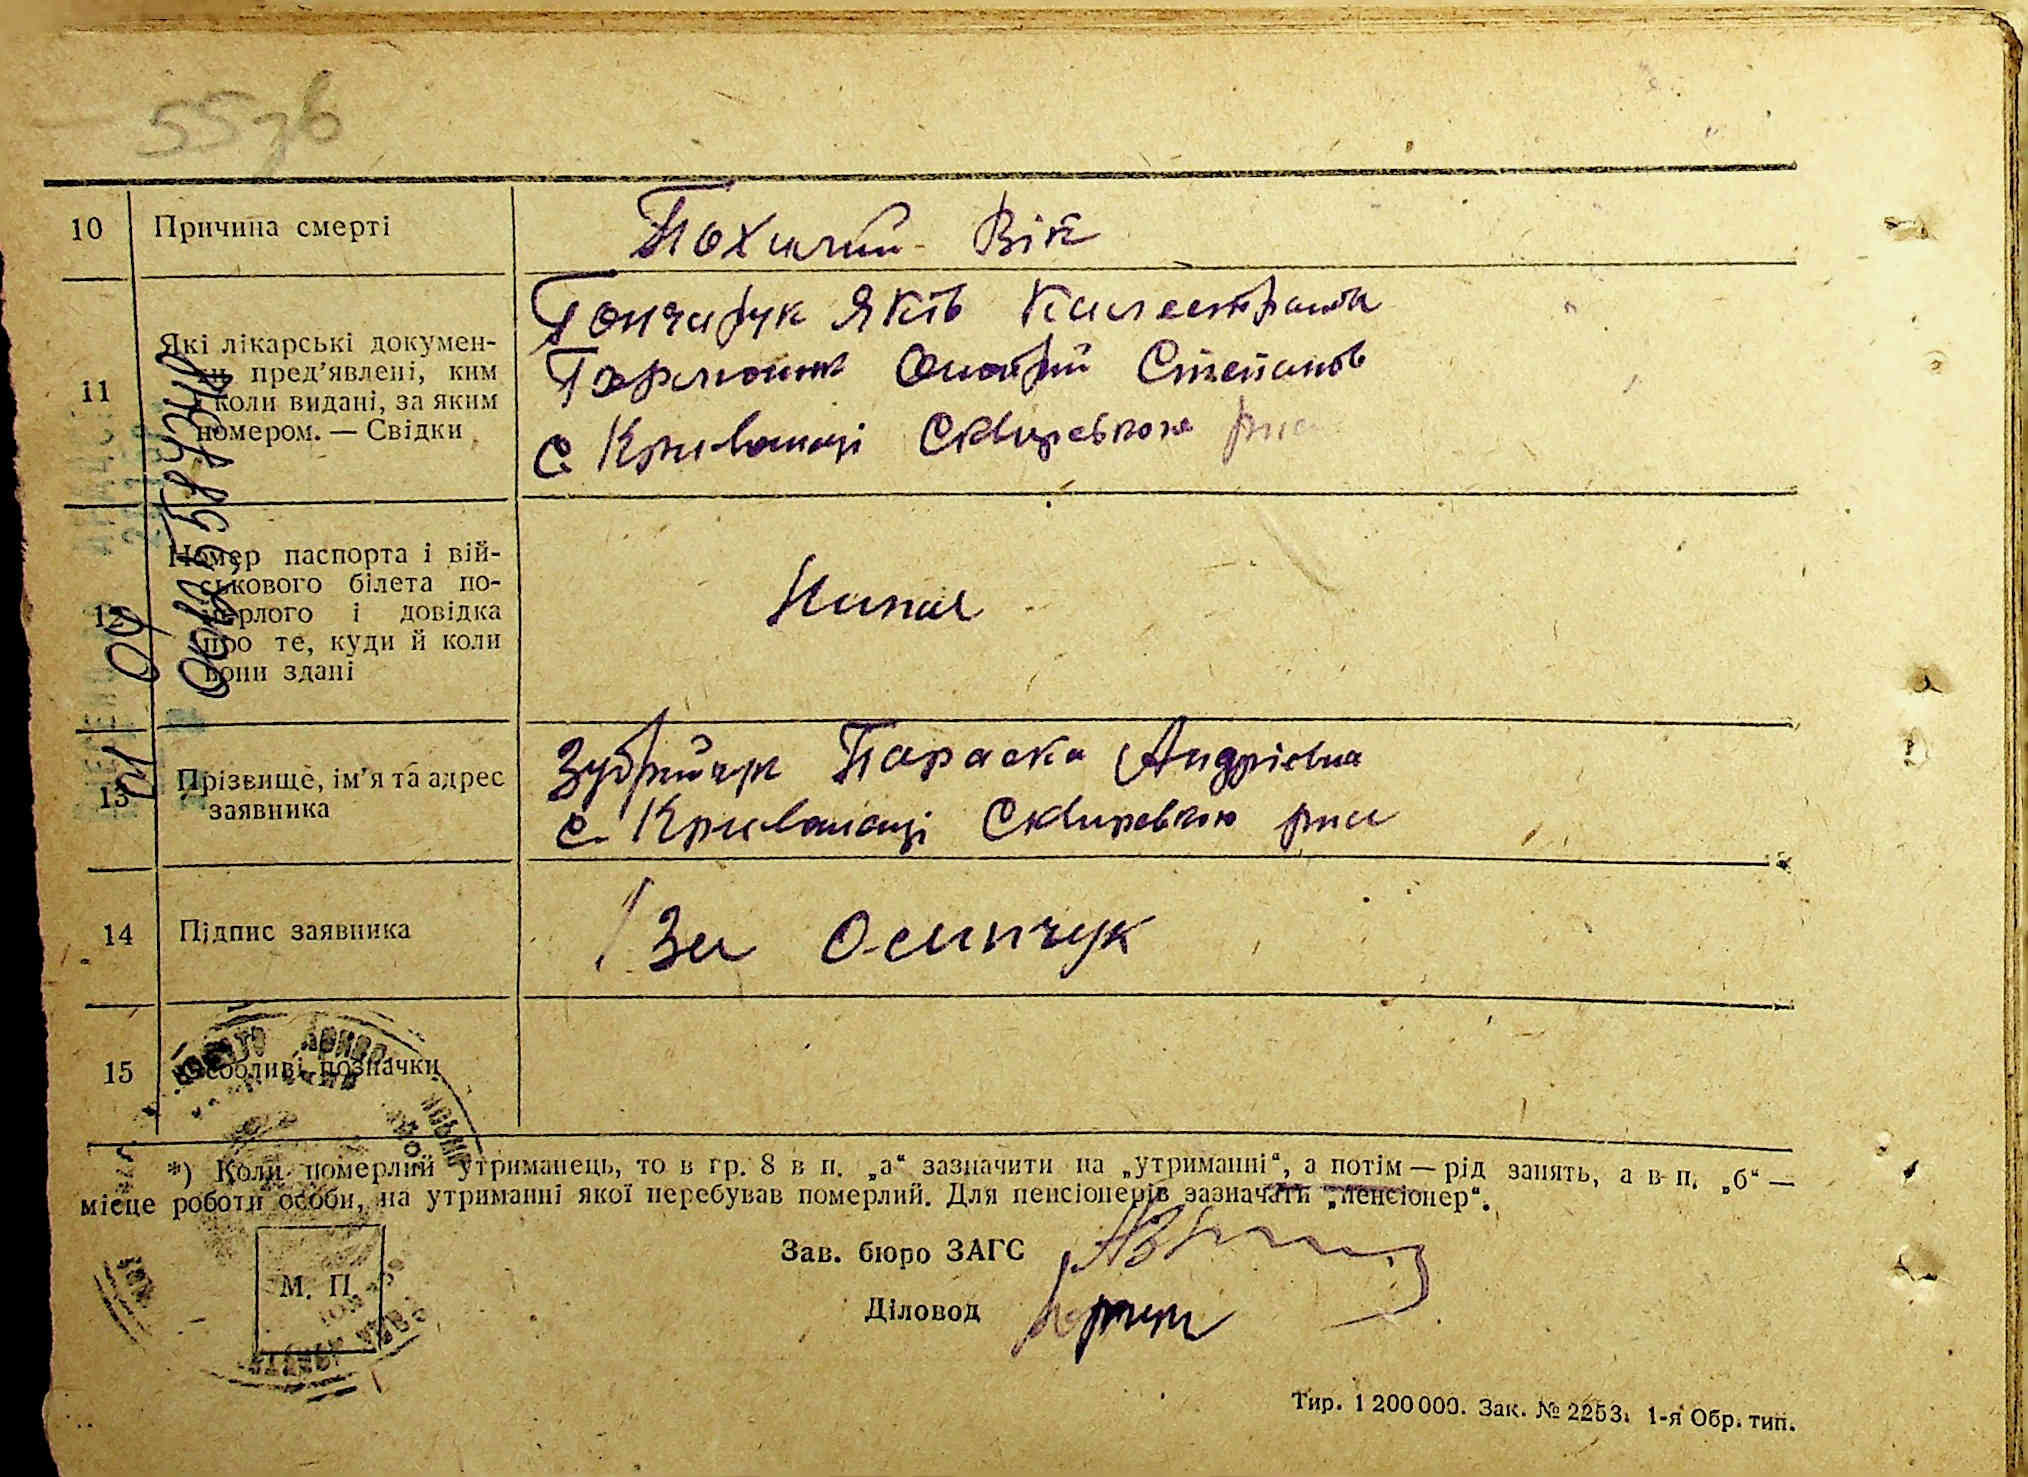 55зв
10 Причина смерті Похилий Вік
11 Які лікарські докумен-
ти пред'явлені, ким
і коли видані, за яким
номером. — Свідки
Гончарук Яків
Степанов
с Кривошиї Сквирського рна
12 Номер паспорта і вій-
ськового білета по-
мерлого і довідка
про те, куди й коли
вони здані
Немає
13 Прізвище, ім'я та адрес
заявника
Зубрійчук Параска Андрієвна
с. Кривошиї Сквирською рна
14 Підпис заявника За Осипчук
15 Особливі позначки
*) Коли померлий утриманець, то в гр. 8 в п. „а“ зазначити на „утриманні“, а потім — рід занять, а в п. „б“ —
місце роботи особи, на утриманні якої перебував померлий. Для пенсіонерів зазначати „пенсіонер“.
Зав. бюро ЗАГС
М. П.
Діловод
Тир. 1 200 000. Зак. № 2253. 1-я Обр. тип.